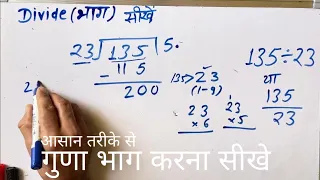 Divide (भाग) सीखें
23)135(5.
- 115
200
135>23
(1-9)
23
×6
23
×5
135÷23
या
135
23
2
आसान तरीके से
गुणा भाग करना सीखे